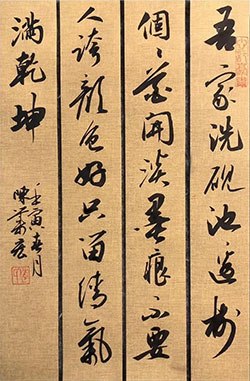 吾家洗硯池邊樹
個個花開淡墨痕不要
人誇顏色好只留清氣
滿乾坤
壬寅春月
陳